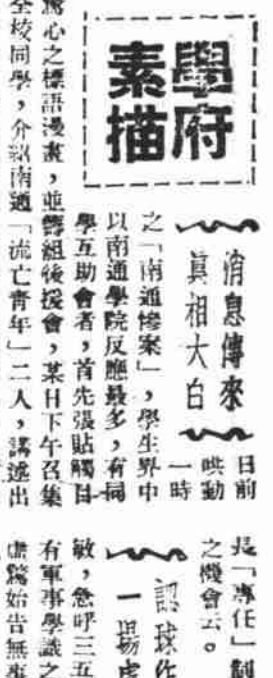 學府
素描
消息傳來
眞相大白
日前
哄動
一時
之「南通慘案」，學生界中
以南通學院反應最多，有同
學互助會者，首先張貼觸目
驚心之標語漫畫，並籌組後援會，某日下午召集
全校同學，介紹南通「流亡青年」二人，講述出
長「專任」制
之機會云。
認球作
一場虛
敏，急呼三五
有軍事學識之
虛驚始告無事